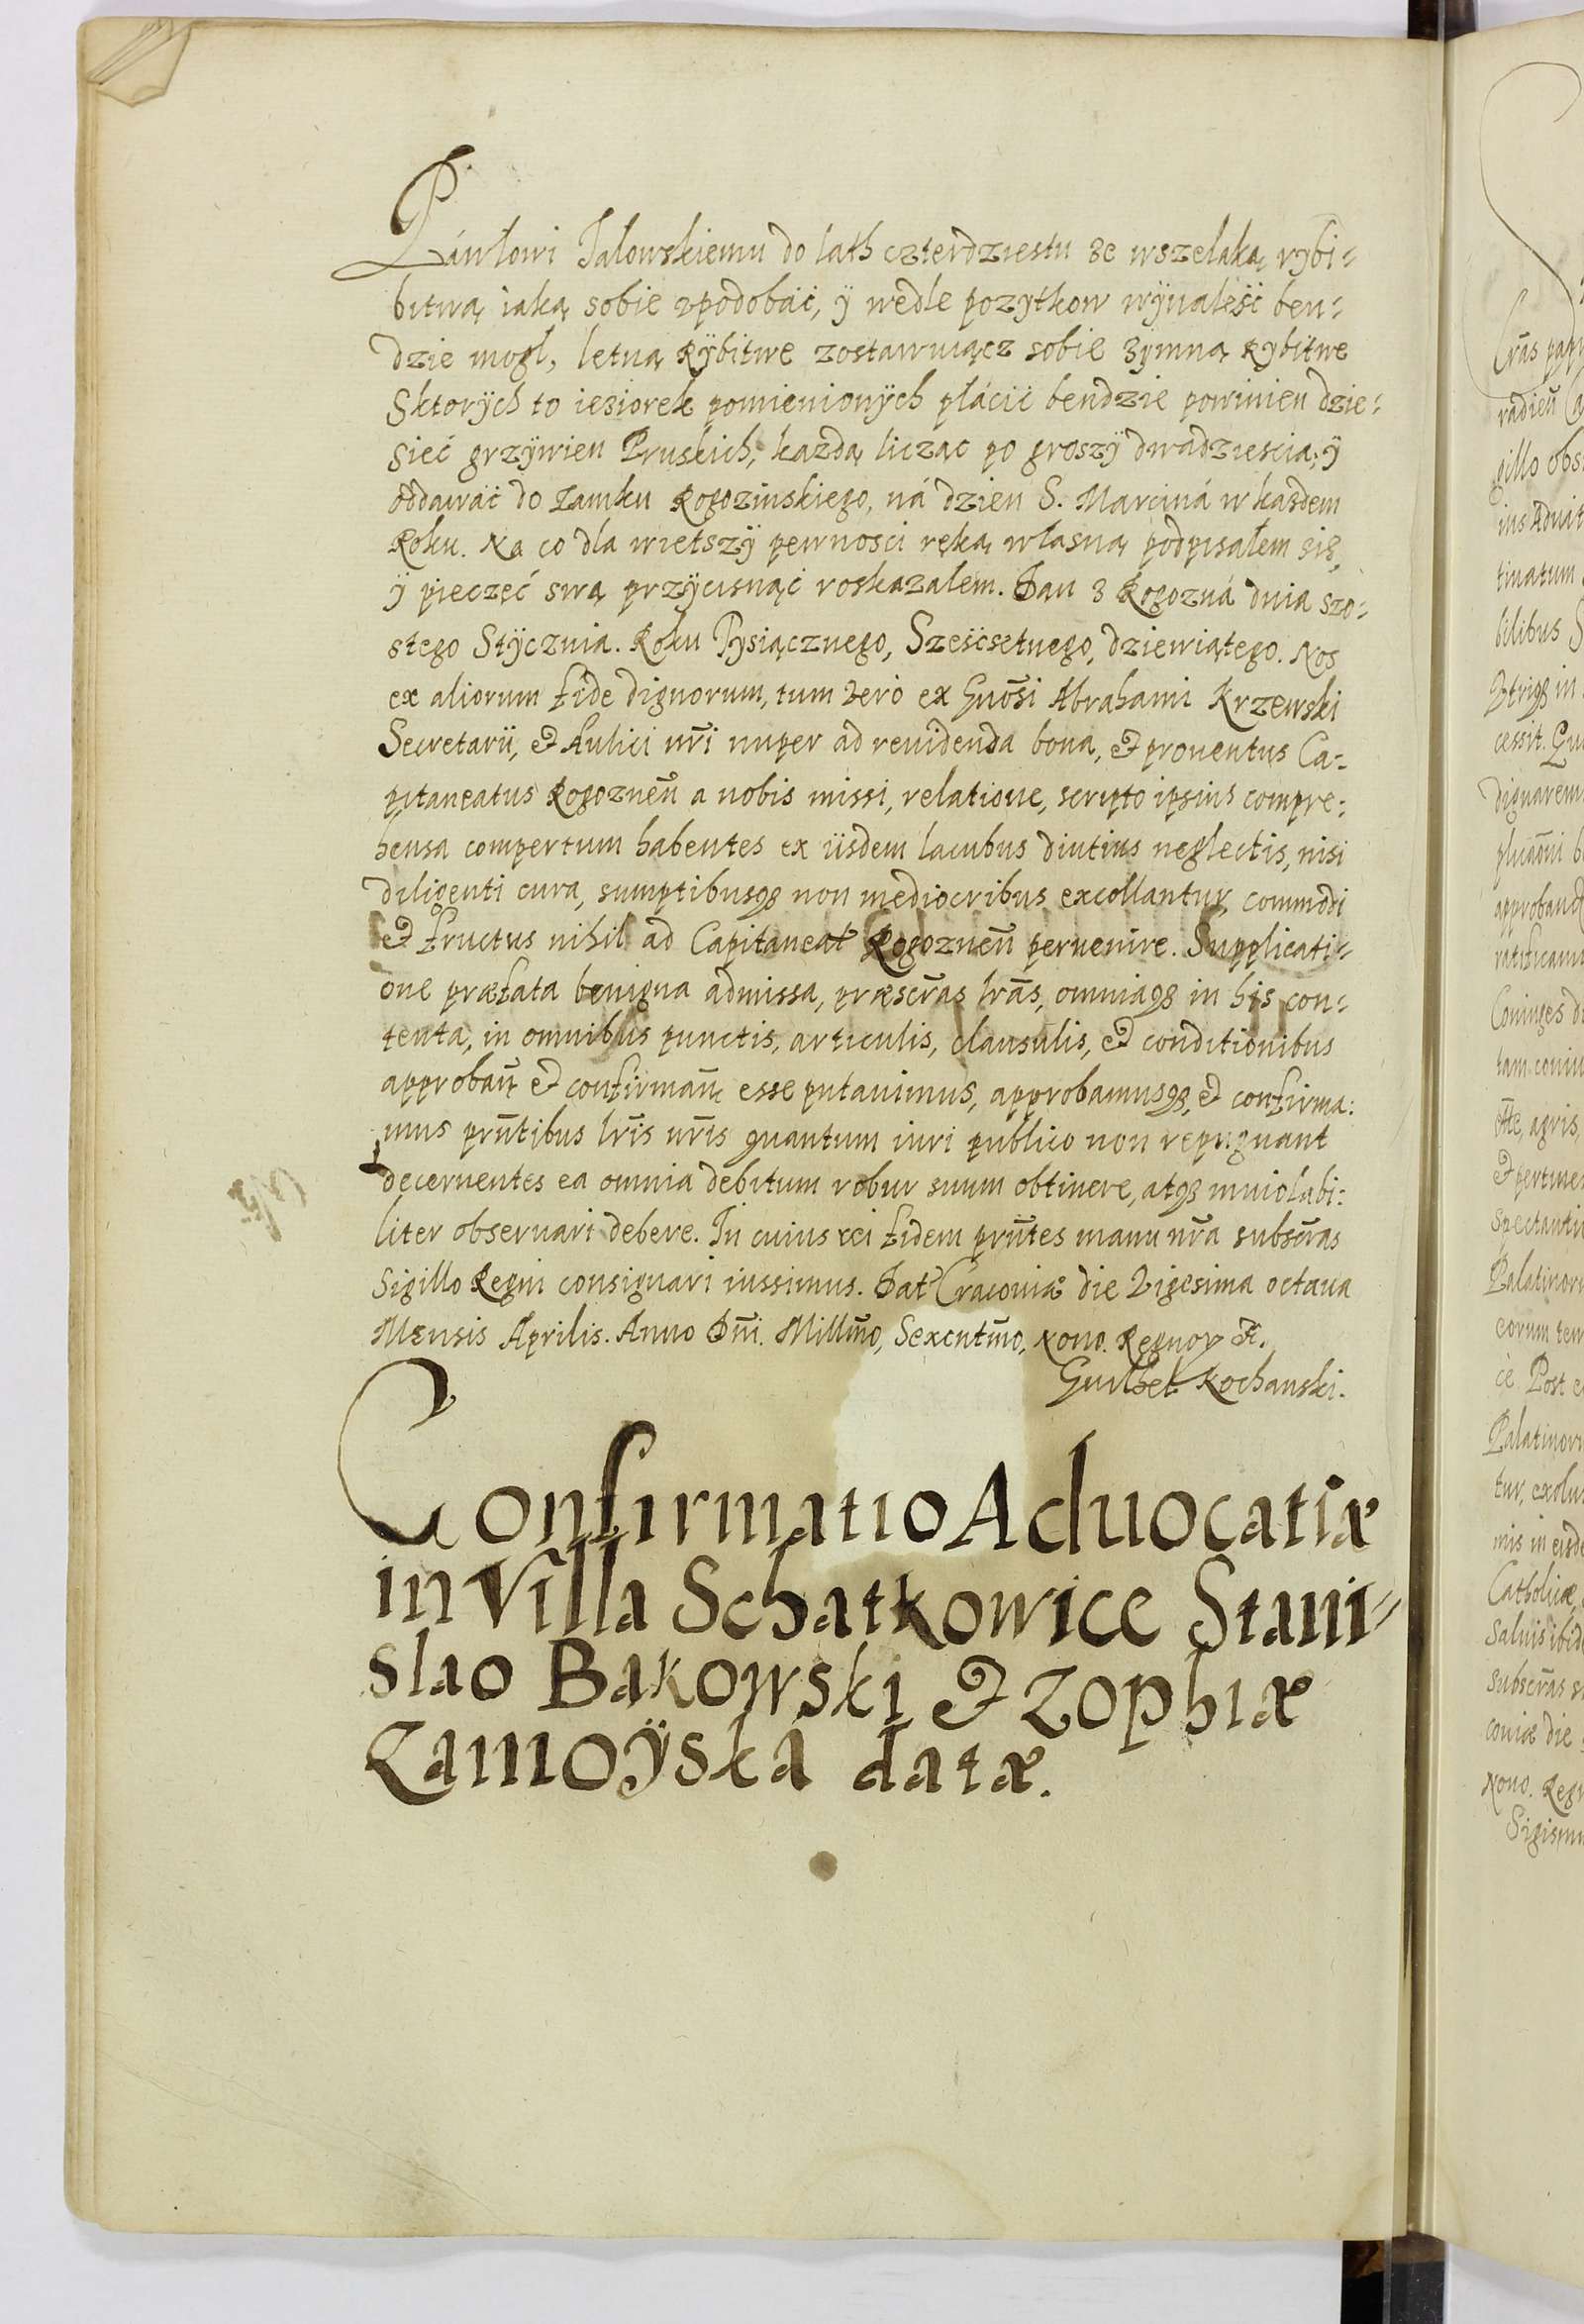 Páwłowi Jałowskiemu do lath czterdziestu ze wszelaką rybi-
bitwą iaką sobie vpodobáć, ÿ wedle pozytkow wÿnaleść ben-
dzie mogl, letną Rÿbitwe zostawuiącz sobie zymną Rybitwe
Sktorÿch to ieziorek pomienionÿch płácić bendzie powinien dzie-
sieć grzÿwien Pruskich, kazdą licząc po groszÿ dwadziescia, ÿ
oddawáć do Zamku Rogozinskiego, ná dzien S. Marciná w kazdem
Roku. Na co dla wietszÿ pewnosci ręką własną podpisałem się,
ÿ pieczęć swą przÿcisnąć roskazalem. Dan z Rogozná dnia szo-
stego Stÿcznia. Roku Tysiącznego, Sześćsetnego, dziewiątego. Nos
ex aliorum fide dignorum, tum vero ex Gnōsi Abrahami Krzewski
Secretarii, & Aulici nr̃i nuper ad reuidenda bona, & prouentus Ca-
pitaneatus Rogoznen̄ a nobis missi, relatione, scripto ipsius compre-
hensa compertum habentes ex iisdem lacubus diutius neglectis, nisi
diligenti cura, sumptibusqꝫ non mediocribus excollantur, commodi
& fructus nihil ad Capitaneat Rogoznen̄ peruenire. Supplicati-
one præfata benigna admissa, præscr̃as lr̃as, omniaqꝫ in his con-
tenta, in omnibus punctis, articulis, clausulis, & conditionibus
approban̄ & confirman̄ esse putauimus, approbamusqꝫ, & confirma-
mus pr̃ntibus lr̃is nr̃is quantum iuri publico non repugnant
decernentes ea omnia debitum robur suum obtinere, atqꝫ inuiolabi-
liter obseruari debere. In cuius rei fidem pr̃ntes manu nr̃a subscr̃as
Sigillo Regni consignari iussimus. Dat Cracouiæ die Vigesima octaua
Mensis Aprilis. Anno Dn̄i. Millm̄o, Sexcentm̄o, Nono. Regnoꝝ &.
Kochanski.
Confirmatio Aduocatiæ
in Villa Schatkowice Stani-
slao Bakowski & Zophiæ
Zamoÿská datæ.